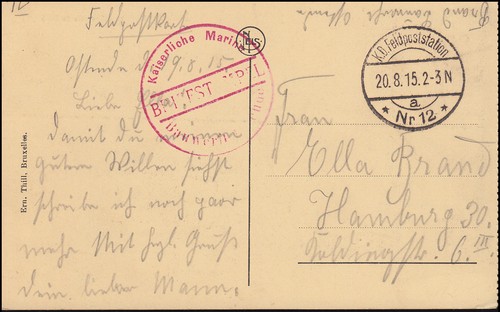 Feldpostkarte
Ostende d. 9.8.15.
Liebe
damit du meinen
guten Willen siehst
schreibe ich noch paar
mehr Mit hzl. Gruß
dein lieber Mann.
Ern. Thill, Bruxelles.
Kaiserliche Marine
NELS
K.D. Feldpoststation
20.8.15.2-3N
a.
* Nr 12 *
Frau
Ella Brand
Hamburg 30.
Koldingstr. 6. III.
Franz